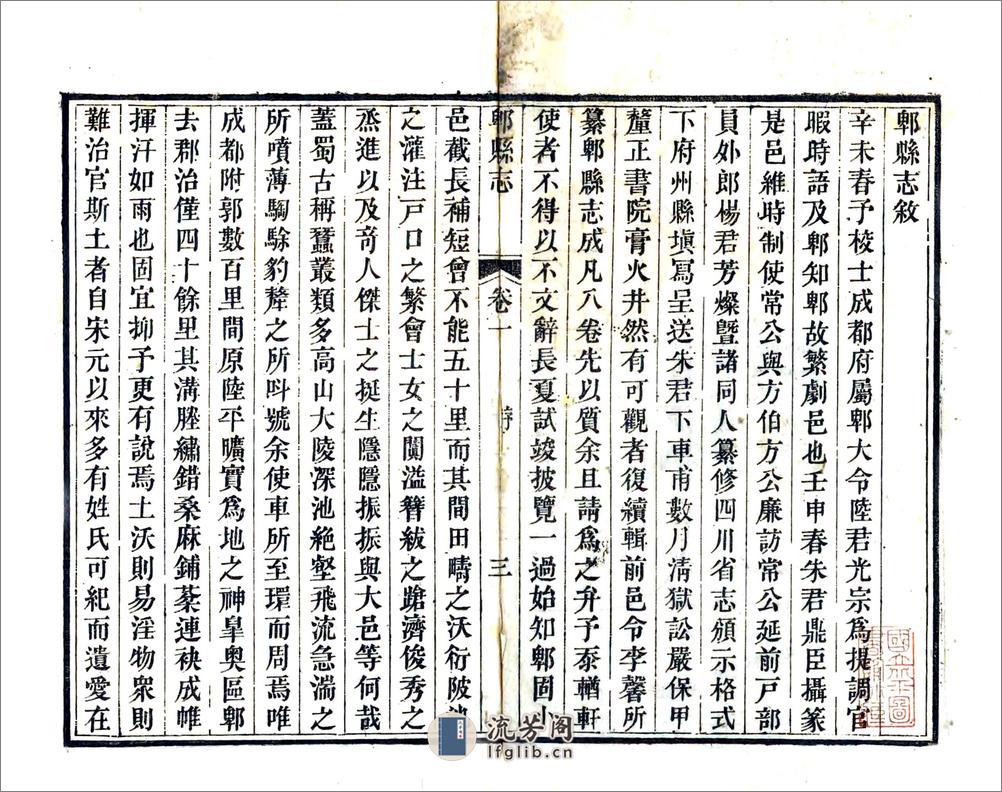 郫縣志敘
辛未春予校士成都府屬郫大令陸君光宗為提調官
暇時語及郫知郫故繁劇邑也壬申春朱君鼎臣攝篆
是邑維時制使常公與方伯方公廉訪常公延前戶部
員外郎楊君芳燦暨諸同人纂修四川省志頒示格式
下府州縣填寫呈送朱君下車甫數月清獄訟嚴保甲
釐正書院膏火井然有可觀者復續輯前邑令李馨所
纂郫縣志成凡八卷先以質余且請為之弁予忝輶軒
使者不得以不文辭長夏試竣披覽一過始知郫固小
郫縣志
卷一
序
三
邑截長補短曾不能五十里而其間田疇之沃衍陂池
之灌注戶口之繁會士女之闐溢簪紱之蹌濟俊秀之
烝進以及奇人傑士之挺生隱隱振振與大邑等何哉
蓋蜀古稱蠶叢類多高山大陵深池絶壑飛流急湍之
所噴薄騶駼豹犛之所呌號余使車所至環而周焉唯
成都附郭數百里間原陸平曠實為地之神臯奧區郫
去郡治僅四十餘里其溝塍繡錯桑麻鋪棻連袂成帷
揮汗如雨也固宜抑予更有説焉土沃則易淫物衆則
難治官斯土者自宋元以來多有姓氏可紀而遺愛在
流芳阁
lfglib.cn